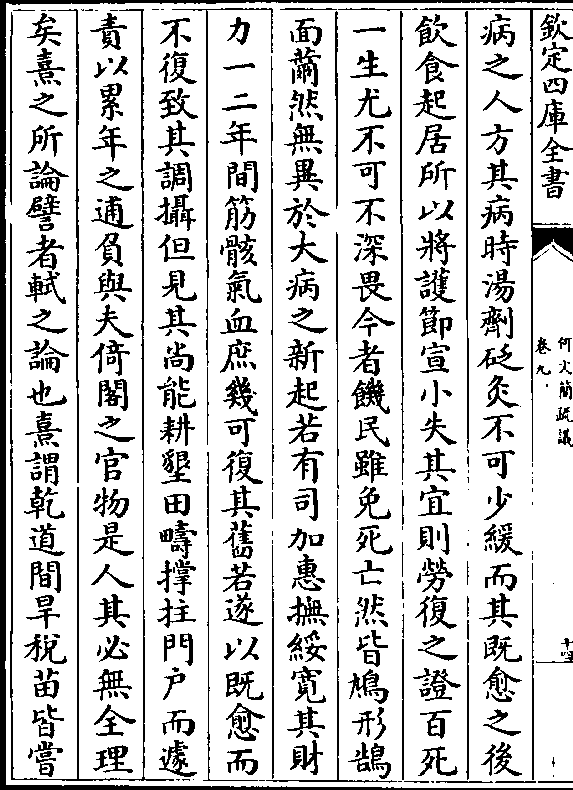 欽定四庫全書
何文簡疏議
卷九
十四
病之人方其病時湯劑砭灸不可少緩而其既愈之後
飲食起居所以將護節宣小失其宜則勞復之證百死
一生尤不可不深畏今者饑民雖免死亡然皆鳩形鵠
面薾然無異於大病之新起若有司加惠撫綏寛其財
力一二年間筋骸氣血庶幾可復其舊若遂以既愈而
不復致其調攝但見其尚能耕墾田疇撐拄門户而遽
責以累年之逋負與夫倚閣之官物是人其必無全理
矣熹之所論譬者軾之論也熹謂乾道間旱稅苗皆嘗